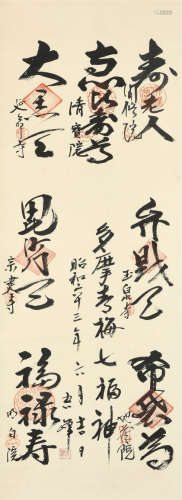 寿老人
清修院
恵比寿尊
清宝院
大黒天
延命寺
弁財天
玉泉寺
多摩青梅七福神
昭和六十三年六月吉日
毘沙門天
宗建寺
布袋尊
地蔵院
福禄寿
明白院